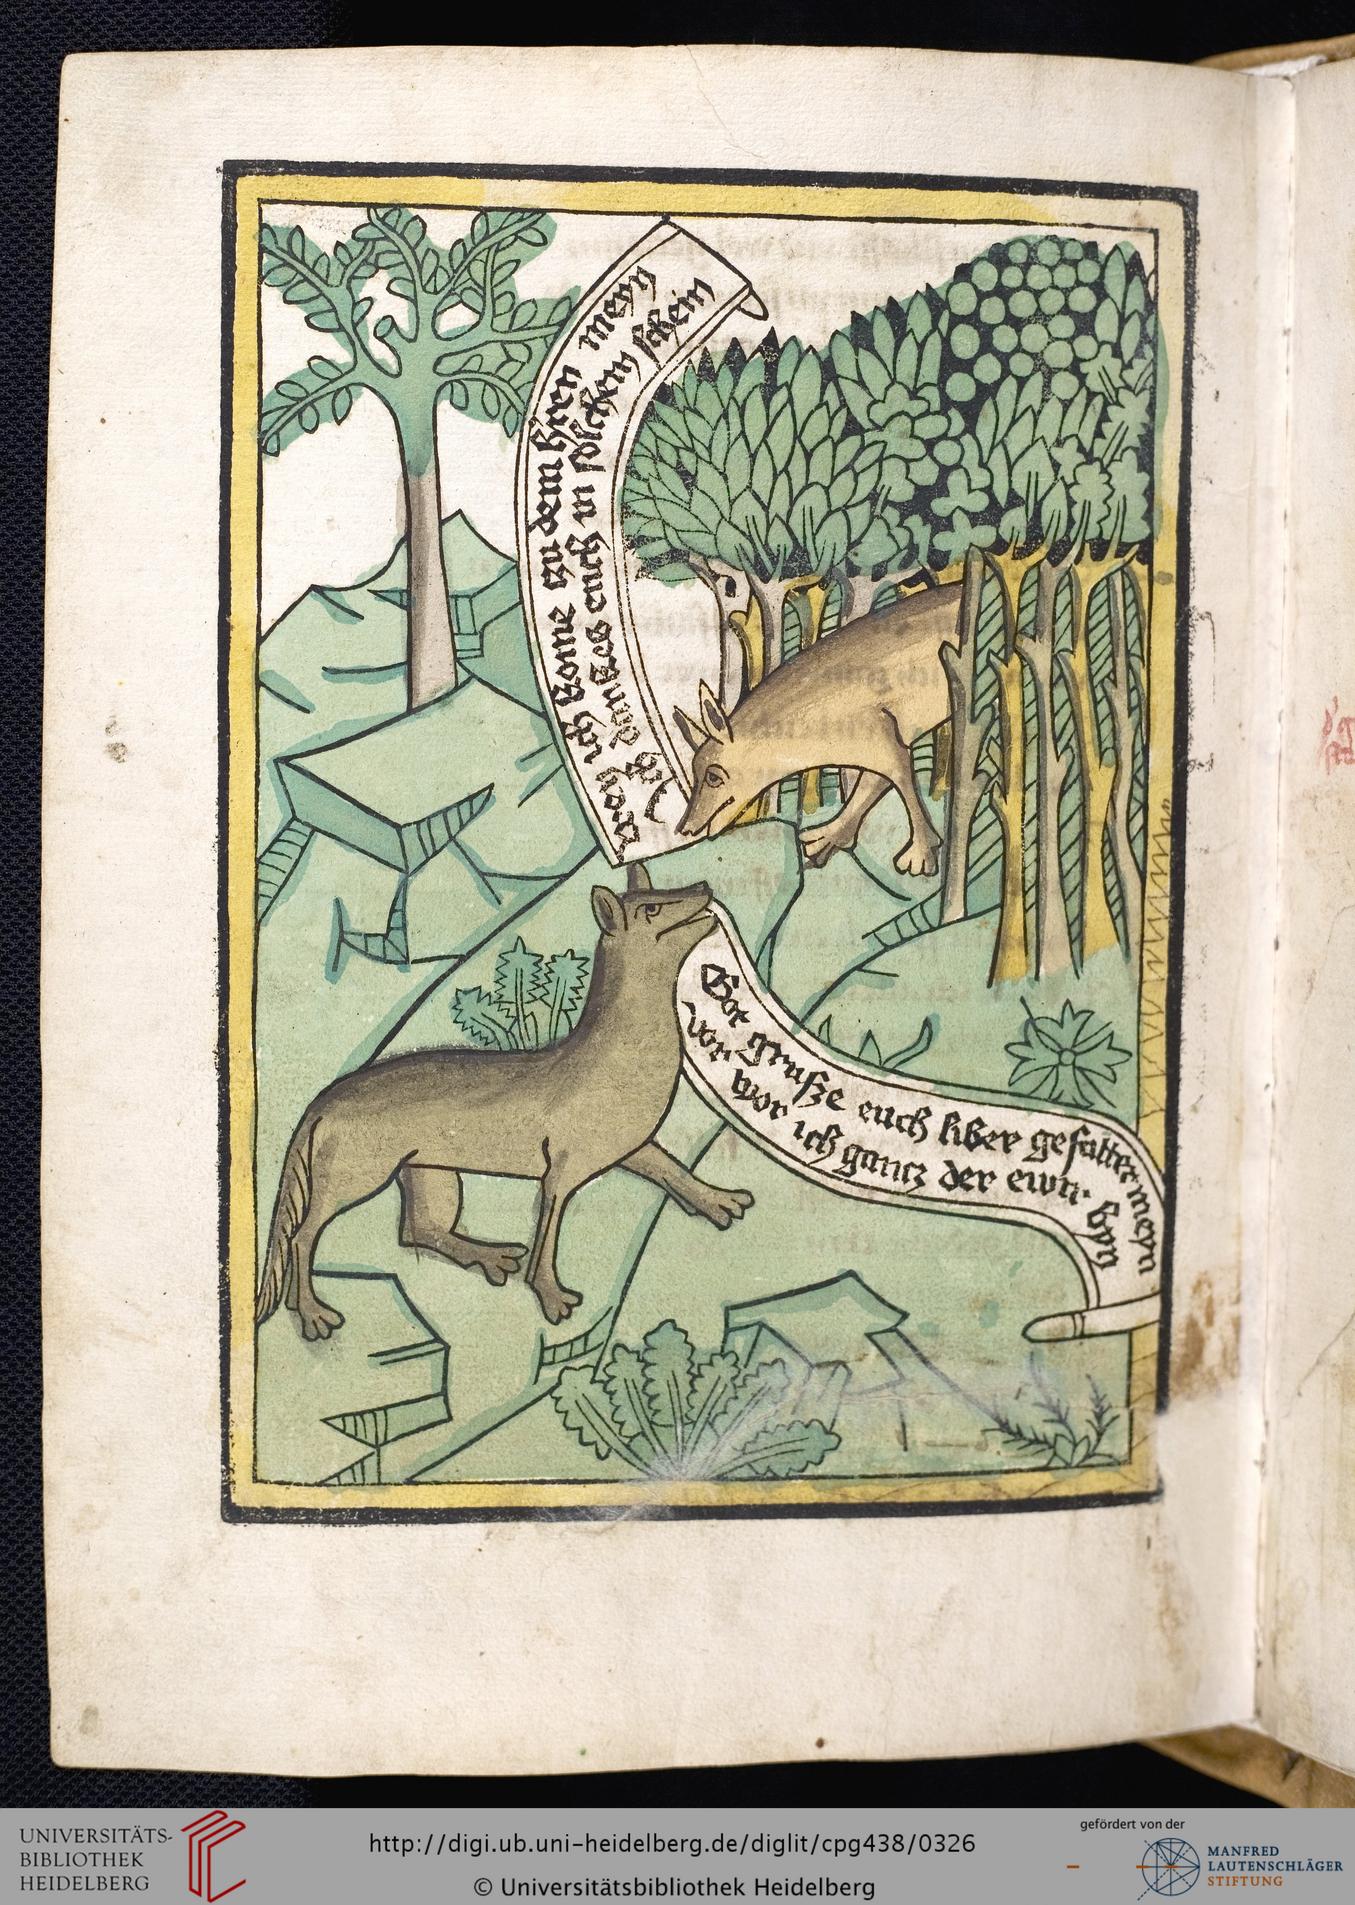 wen ich kome czu dem hren meyn
Ich dunkes euch in solchem schein
Got grusze euch liber gefatter meyn
vor wor ich gancz der ewir byn
UNIVERSITÄTS-
BIBLIOTHEK
HEIDELBERG
http://digi.ub.uni-heidelberg.de/diglit/cpg438/0326
© Universitätsbibliothek Heidelberg
gefördert von der
MANFRED
LAUTENSCHLÄGER
STIFTUNG